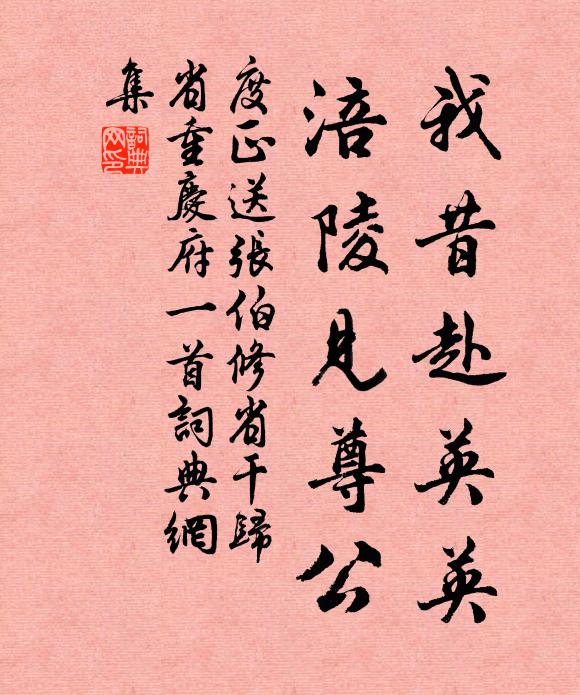 我昔赴英英
涪陵見尊公
度正送張伯修省干歸
省重慶府一首詞典網
集
詞典網印